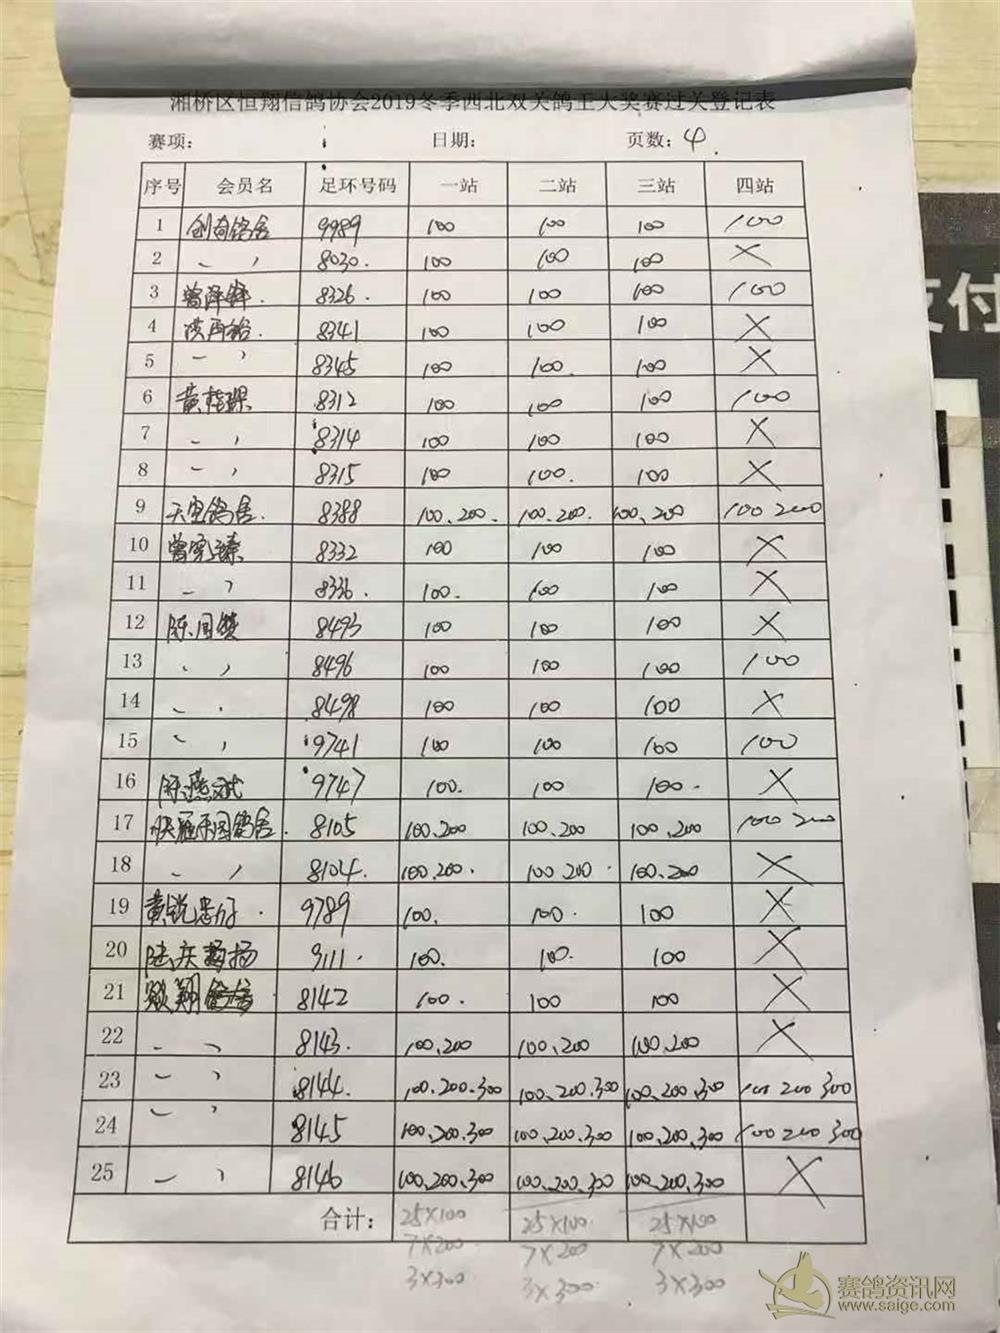 湘桥区恒翔信鸽协会2019冬季西北双关鸽王大奖赛过关登记表
赛项: 日期: 页数: 4.
序号 会员名 足环号码 一站 二站 三站 四站
1 创奇鸽舍 9989 100 100 100 100
2 〃 8030. 100 100 100 ×
3 曾泽锋. 8326. 100 100 100 100
4 8341 100 100 100 ×
5 〃 8345 100 100. 100 ×
6 黄桂琛 8312 100 100 100 100
7 〃 8314 100 100 100 ×
8 〃 8315 100 100. 100 ×
9 天宝鸽舍. 8388 100.200. 100.200. 100.200 100 200
10 8332 100 100 100 ×
11 〃 8336. 100. 100 100 ×
12 陈国 8493 100 100 100 ×
13 〃 8496 100 100 100 100
14 〃 8498 100 100 100 ×
15 〃 9741 100 100 100 100
16 陈燕斌 9747 100. 100 100. ×
17 鸽舍. 8105 100.200 100.200 100.200 100 200
18 〃 8104. 100.200. 100.200 100.200 ×
19 黄锐忠 9789 100. 100. 100 ×
20 陆庆 扬 9111. 100. 100. 100 ×
21 翔鸽舍 8142 100. 100 100 ×
22 〃 8143. 100.200 100.200 100.200 ×
23 〃 8144. 100.200.300 100.200.300 100.200.300 100 200 300
24 〃 8145 100.200.300 100.200.300 100.200.300 100 200 300
25 〃 8146 100.200.300 100.200.300 100.200.300 ×
合计: 25×100 25×100 25×100
7×200 7×200 7×200
3×300 3×300 3×300
支付
赛鸽资讯网
www.saige.com